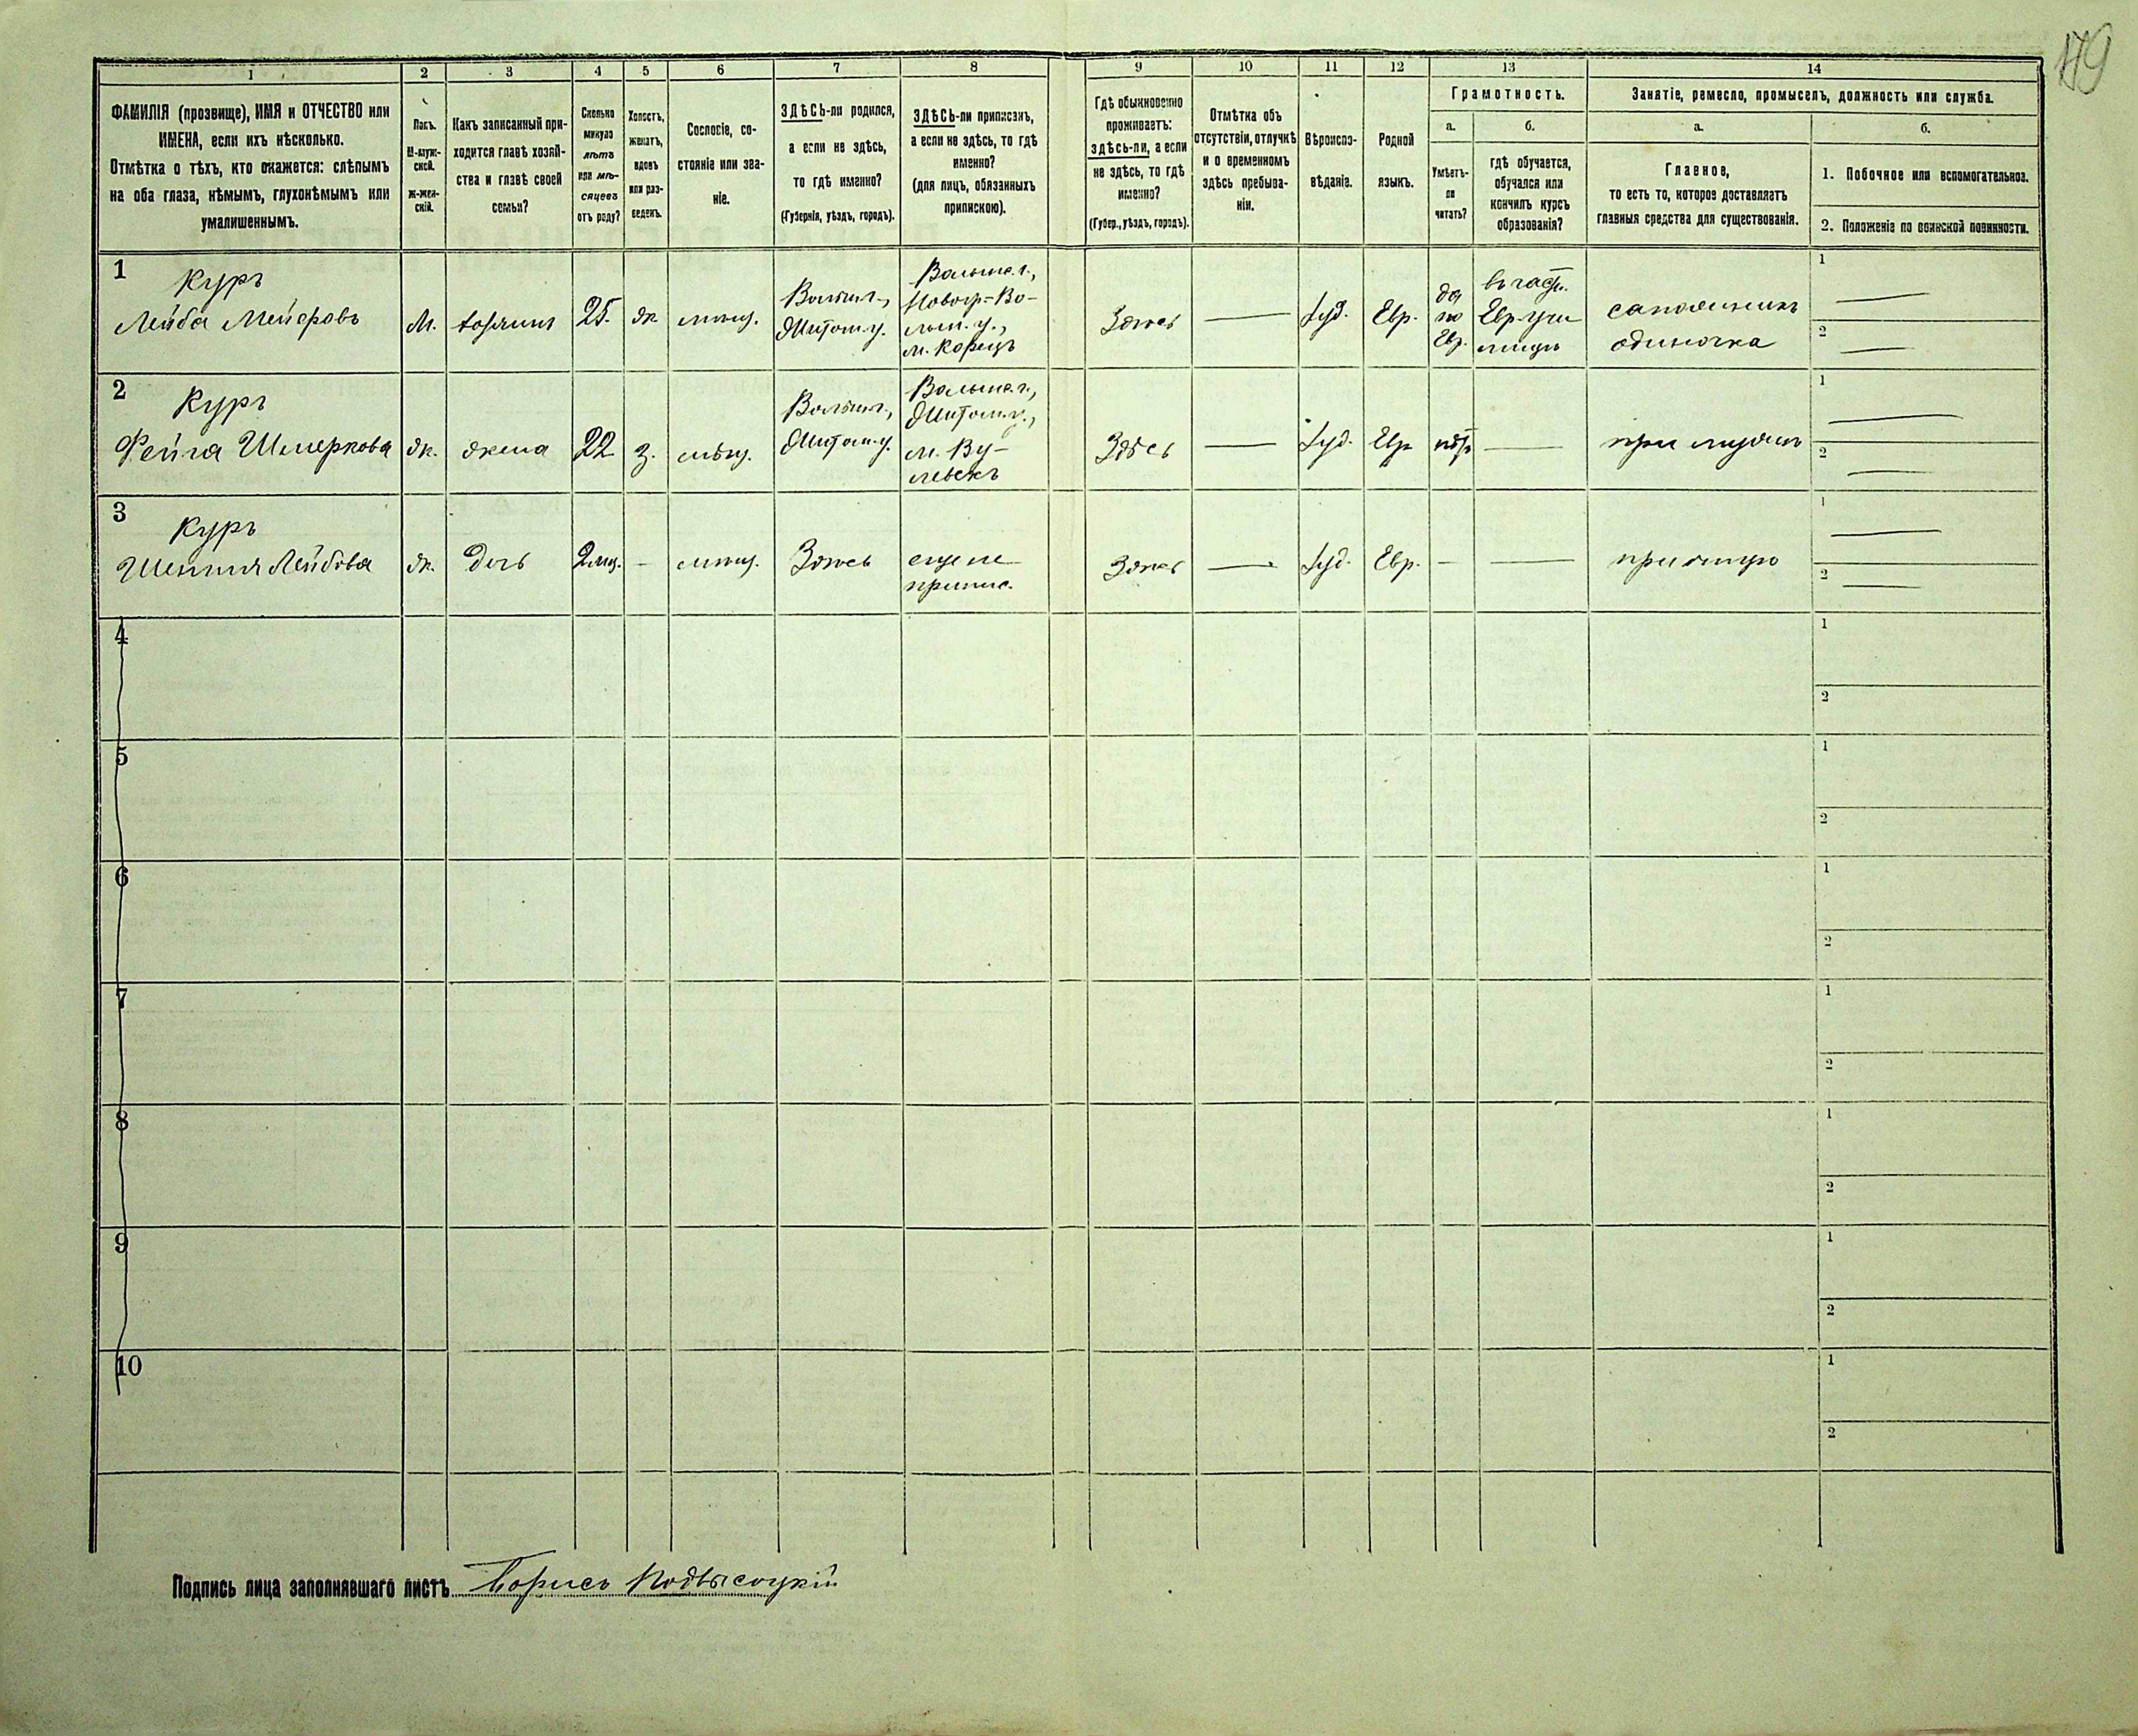 179
1
2
3
4
5
6
7
8
9
10
11
12
13
14
ФАМИЛІЯ (прозвище), ИМЯ и ОТЧЕСТВО или
ИМЕНА, если ихъ нѣсколько.
Отмѣтка о тѣхъ, кто окажется: слѣпымъ
на оба глаза, нѣмымъ, глухонѣмымъ или
умалишеннымъ.
Полъ.
М-муж-
ской.
Ж-жен-
скій.
Какъ записанный при-
ходится главѣ хозяй-
ства и главѣ своей
семьи?
Сколько
минуло
лѣтъ
или мѣ-
сяцевъ
отъ роду?
Холостъ,
женатъ,
вдовъ
или раз-
веденъ.
Сословіе, со-
стояніе или зва-
ніе.
ЗДѢСЬ-ли родился,
а если не здѣсь,
то гдѣ именно?
(Губернія, уѣздъ, городъ).
ЗДѢСЬ-ли приписанъ,
а если не здѣсь, то гдѣ
именно?
(для лицъ, обязанныхъ
припискою).
Гдѣ обыкновенно
проживаетъ:
здѣсь-ли, а если
не здѣсь, то гдѣ
именно?
(Губер., уѣздъ, городъ).
Отмѣтка объ
отсутствіи, отлучкѣ
и о временномъ
здѣсь пребыва-
ніи.
Вѣроиспо-
вѣданіе.
Родной
языкъ.
Грамотность.
а.
Умѣетъ-
ли
читать?
б.
гдѣ обучается,
обучался или
кончилъ курсъ
образованія?
Занятіе, ремесло, промыселъ, должность или служба.
а.
Главное,
то есть то, которое доставляетъ
главныя средства для существованія.
б.
1. Побочное или вспомогательное.
2. Положеніе по воинской повинности.
1
Куръ
Лейба Мейеровъ
М.
хозяинъ
25.
ж
мѣщ.
Волын. г.,
Житом. у.
Волынс. г.,
Новогр=Во-
лын. у.,
м. Корецъ
Здѣсь
Іуд.
Евр.
да
по
Евр.
въ част.
Евр. учи
лищѣ
сапожникъ
одиночка
1
2
2
Куръ
Фейга Шмеркова
ж.
жена
22
з.
мѣщ.
Волын. г.,
Житом. у.
Волынс. г.,
Житом. у.,
Здѣсь
Іуд.
Евр
нѣтъ
при мужѣ
1
2
3
Куръ
Лейбова
ж.
дочь
2 мѣс.
-
мѣщ.
Здѣсь
еще не
припис.
Здѣсь
Іуд.
Евр.
-
при отцѣ
1
2
4
1
2
5
1
2
6
1
2
7
1
2
8
1
2
9
1
2
10
1
2
Подпись лица заполнявшаго листъ Борисъ Подвысоцкій